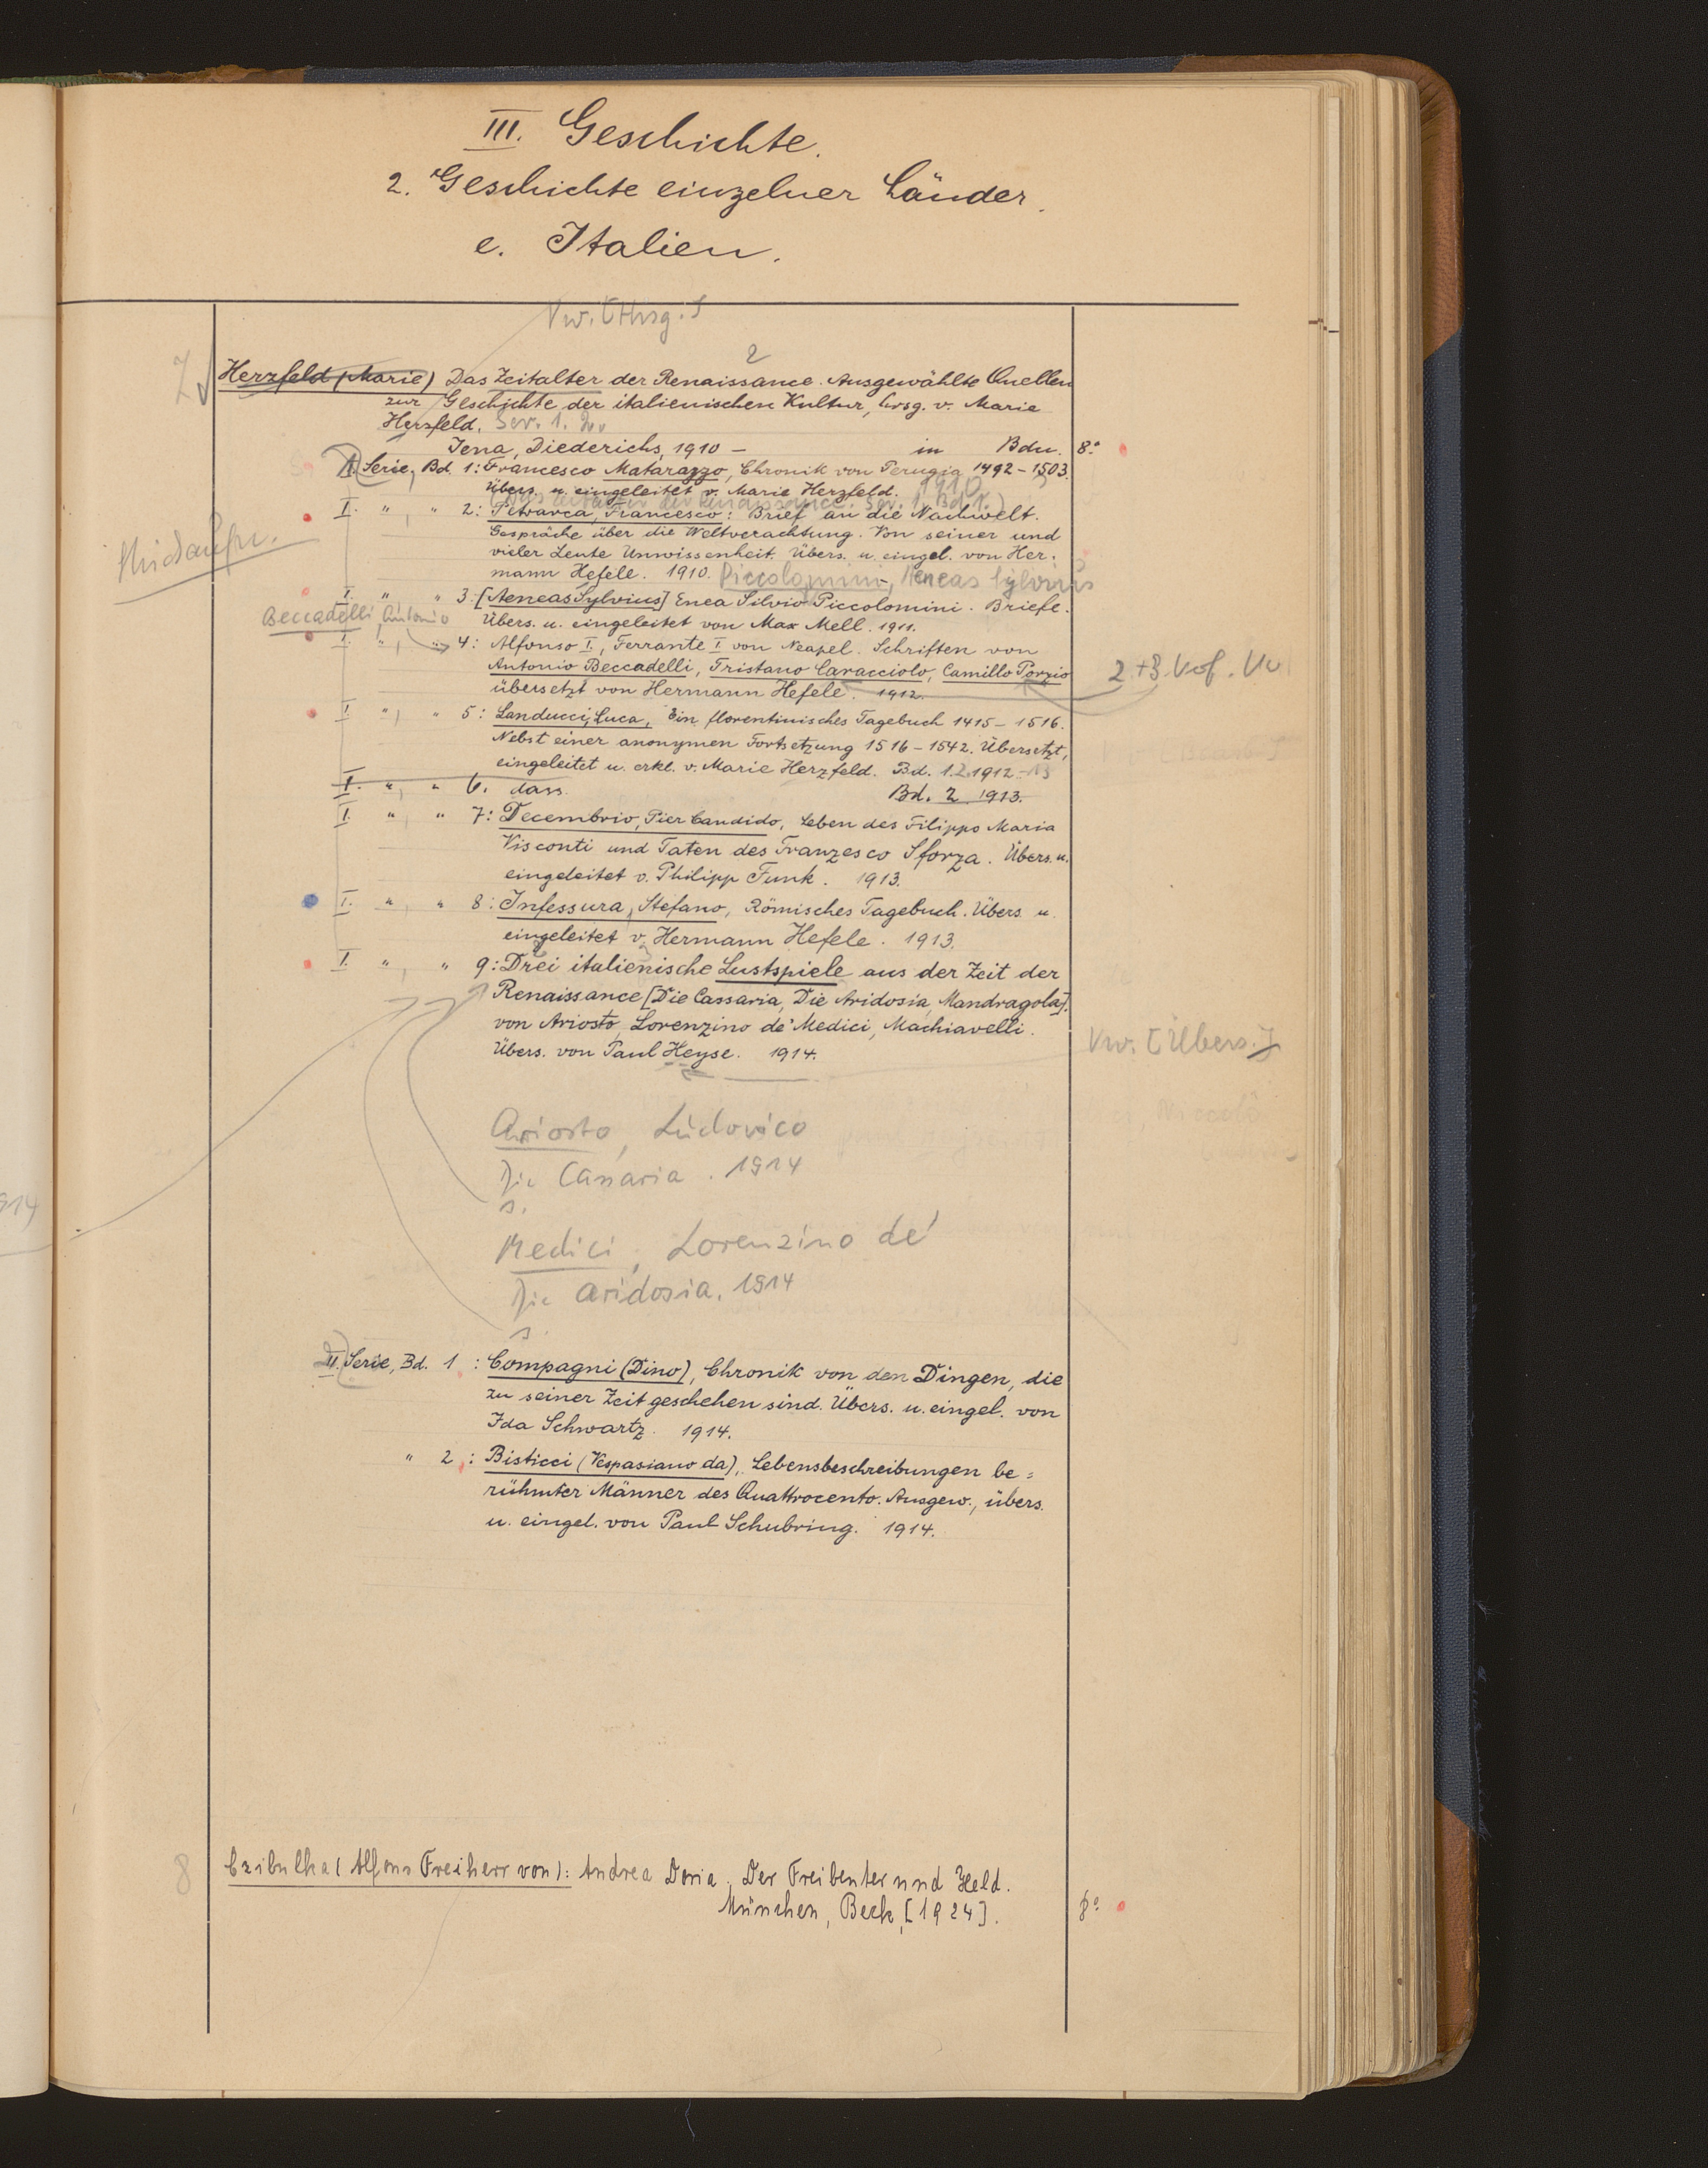 III. Geschichte.
2. Geschichte einzelner Länder.
e. Italien.
Vw. [Hrsg.]
2
7
Herzfeld (Marie) Das Zeitalter der Renaissance. Ausgewählte Quellen
zur Geschichte der italienischen Kultur, hrsg. v. Marie
Herzfeld. Ser. 1. 2.
Jena, Diederichs, 1910 – in Bdn. 8°
I. Serie, Bd. 1: Francesco Matarazzo, Chronik von Perugia 1492–1503.
Übers. u. eingeleitet v. Marie Herzfeld. 1910
(Das Zeitalter der Renaissance. Ser. 1, Bd 1.)
I. " , " 2: Petrarca, Francesco: Brief an die Nachwelt.
Gespräche über die Weltverachtung. Von seiner und
vieler Leute Unwissenheit. Übers. u. eingel. von Her-
mann Hefele. 1910. Piccolomini, Aeneas Sylvius
I. " , " 3: [Aeneas Sylvius] Enea Silvio Piccolomini. Briefe.
Übers. u. eingeleitet von Max Mell. 1911.
Beccadelli, Antonio
I. " , " 4: Alfonso I., Ferrante I. von Neapel. Schriften von
Antonio Beccadelli, Tristano Caracciolo, Camillo Porzio
übersetzt von Hermann Hefele. 1912.
2.+3. Vof. Vw.
I. " , " 5: Landucci, Luca, Ein florentinisches Tagebuch 1415–1516.
Nebst einer anonymen Fortsetzung 1516–1542. Übersetzt,
eingeleitet u. erkl. v. Marie Herzfeld. Bd. 1.2. 1912–13
I. " , " 6. dass. Bd. 2 1913.
I. " , " 7: Decembrio, Pier Candido, Leben des Filippo Maria
Visconti und Taten des Franzesco Sforza. Übers. u.
eingeleitet v. Philipp Funk. 1913.
I. " , " 8: Infessura, Stefano, Römisches Tagebuch. Übers. u.
eingeleitet v. Hermann Hefele. 1913.
I. " , " 9: Drei italienische Lustspiele aus der Zeit der
Renaissance [Die Cassaria, Die Aridosia, Mandragola].
von Ariosto, Lorenzino de' Medici, Machiavelli.
Übers. von Paul Heyse. 1914.
Vw. [Übers.]
Ariosto, Ludovico
Die Cassaria. 1914
s.
Medici, Lorenzino de'
Die Aridosia. 1914
s.
II. Serie, Bd. 1: Compagni (Dino), Chronik von den Dingen, die
zu seiner Zeit geschehen sind. Übers. u. eingel. von
Ida Schwartz. 1914.
" 2: Bisticci (Vespasiano da), Lebensbeschreibungen be-
rühmter Männer des Quattrocento. Ausgew., übers.
u. eingel. von Paul Schubring. 1914.
8
Czibulka (Alfons Freiherr von): Andrea Doria. Der Freibeuter und Held.
München, Beck, [1924]. 8°